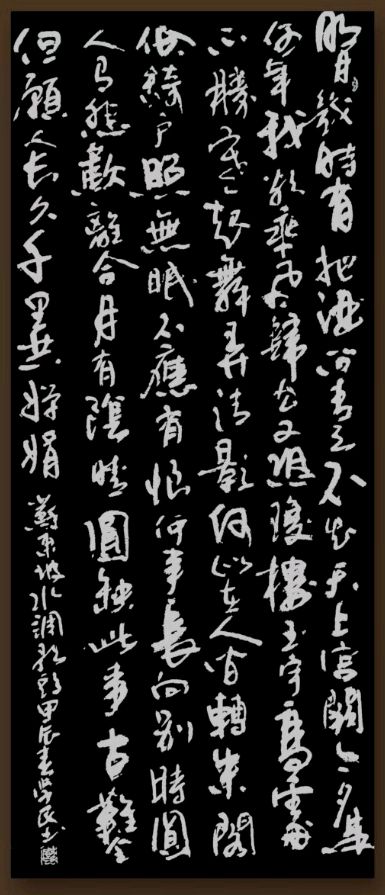 明月幾時有把酒问青天不知天上宫闕今夕是
何年我欲乘风歸去又恐瓊樓玉宇高處
不勝寒起舞弄清影何似在人间轉朱閣
低綺户照無眠不應有恨何事長向别時圓
人有悲歡離合月有陰晴圓缺此事古難全
但願人长久千里共嬋娟 蘇東坡水調歌頭甲辰春學民书